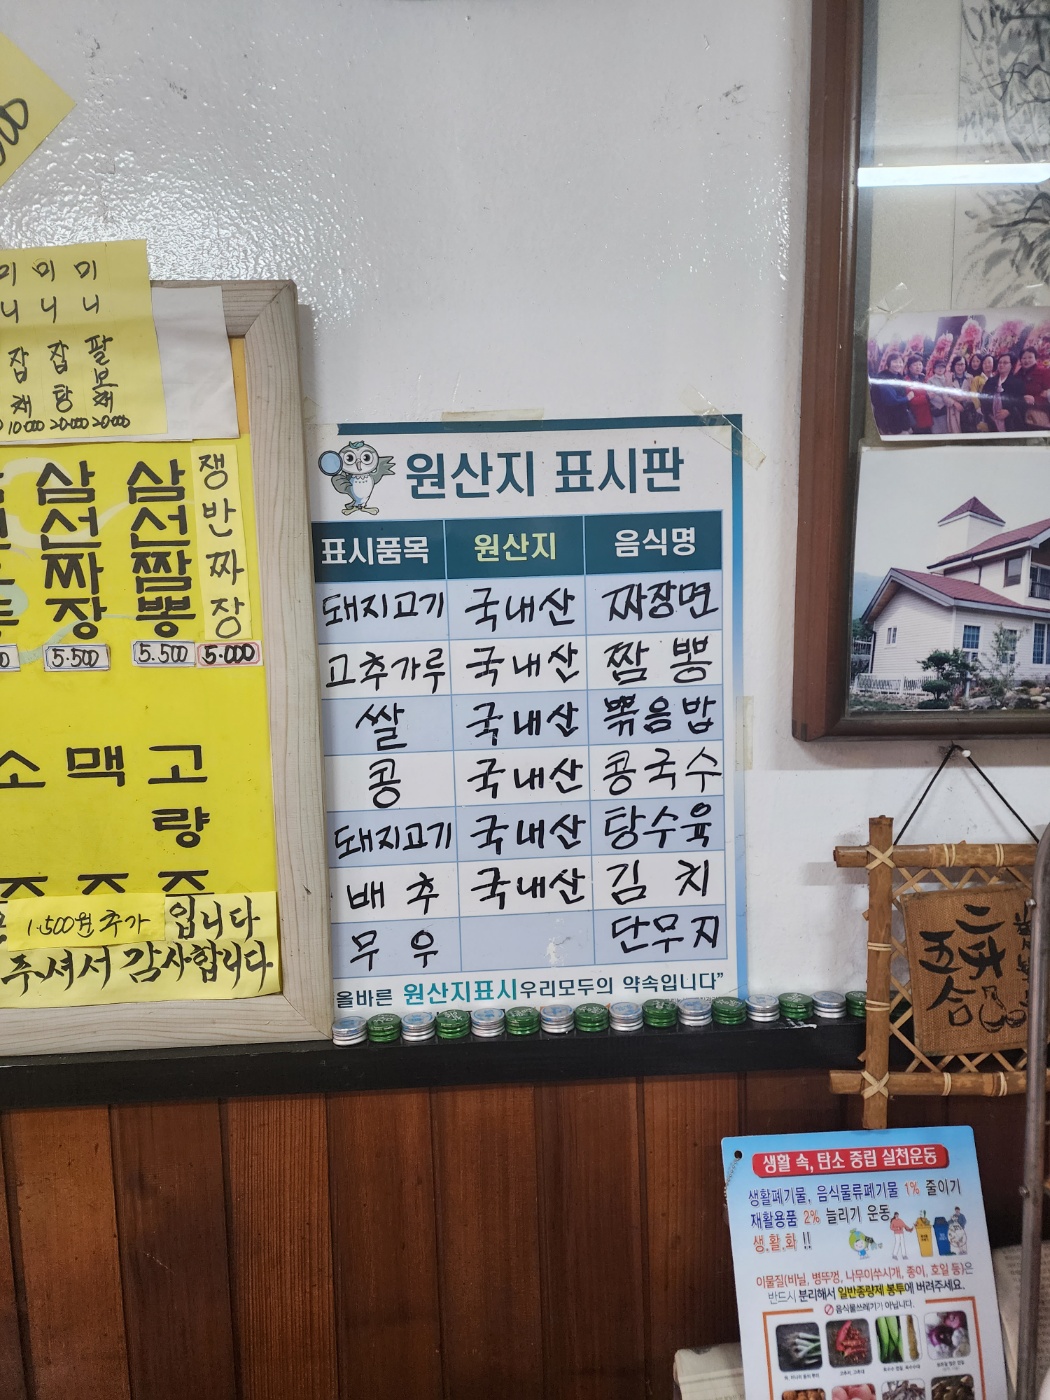 미니잡채 10000
미니잡탕 20000
미니팔보채 20000
삼선짜장 5.500
삼선짬뽕 5.500
쟁반짜장 5.000
소
맥
고량
1.500원 추가 입니다
주셔서 감사합니다
원산지 표시판
표시품목 원산지 음식명
돼지고기 국내산 짜장면
고추가루 국내산 짬뽕
쌀 국내산 볶음밥
콩 국내산 콩국수
돼지고기 국내산 탕수육
배추 국내산 김치
무우 단무지
올바른 원산지표시 우리모두의 약속입니다”
二升
五合
생활 속, 탄소 중립 실천운동
생활폐기물, 음식물류폐기물 1% 줄이기
재활용품 2% 늘리기 운동
생.활.화 !!
이물질(비닐, 병뚜껑, 나무이쑤시개, 종이, 호일 등)은
반드시 분리해서 일반종량제 봉투에 버려주세요.
음식물쓰레기가 아닙니다.